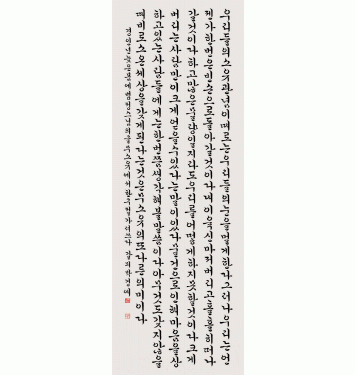 우리들의소유관념이때로는우리들의눈을멀게한다그러나우리는언
젠가한번은빈손으로돌아갈것이다내이육신마저버리고홀홀히떠나
갈것이다하고많은물량일지라도우리를어떻게하지못할것이다크게
버리는사람만이크게얻을수있다는말이있다물건으로인해마음을상
하고있는사람들에게는한번쯤생각해볼말씀이다아무것도갖지않을
때비로소온세상을갖게된다는것은무소유의또다른의미이다
법정스님의글무소유에서